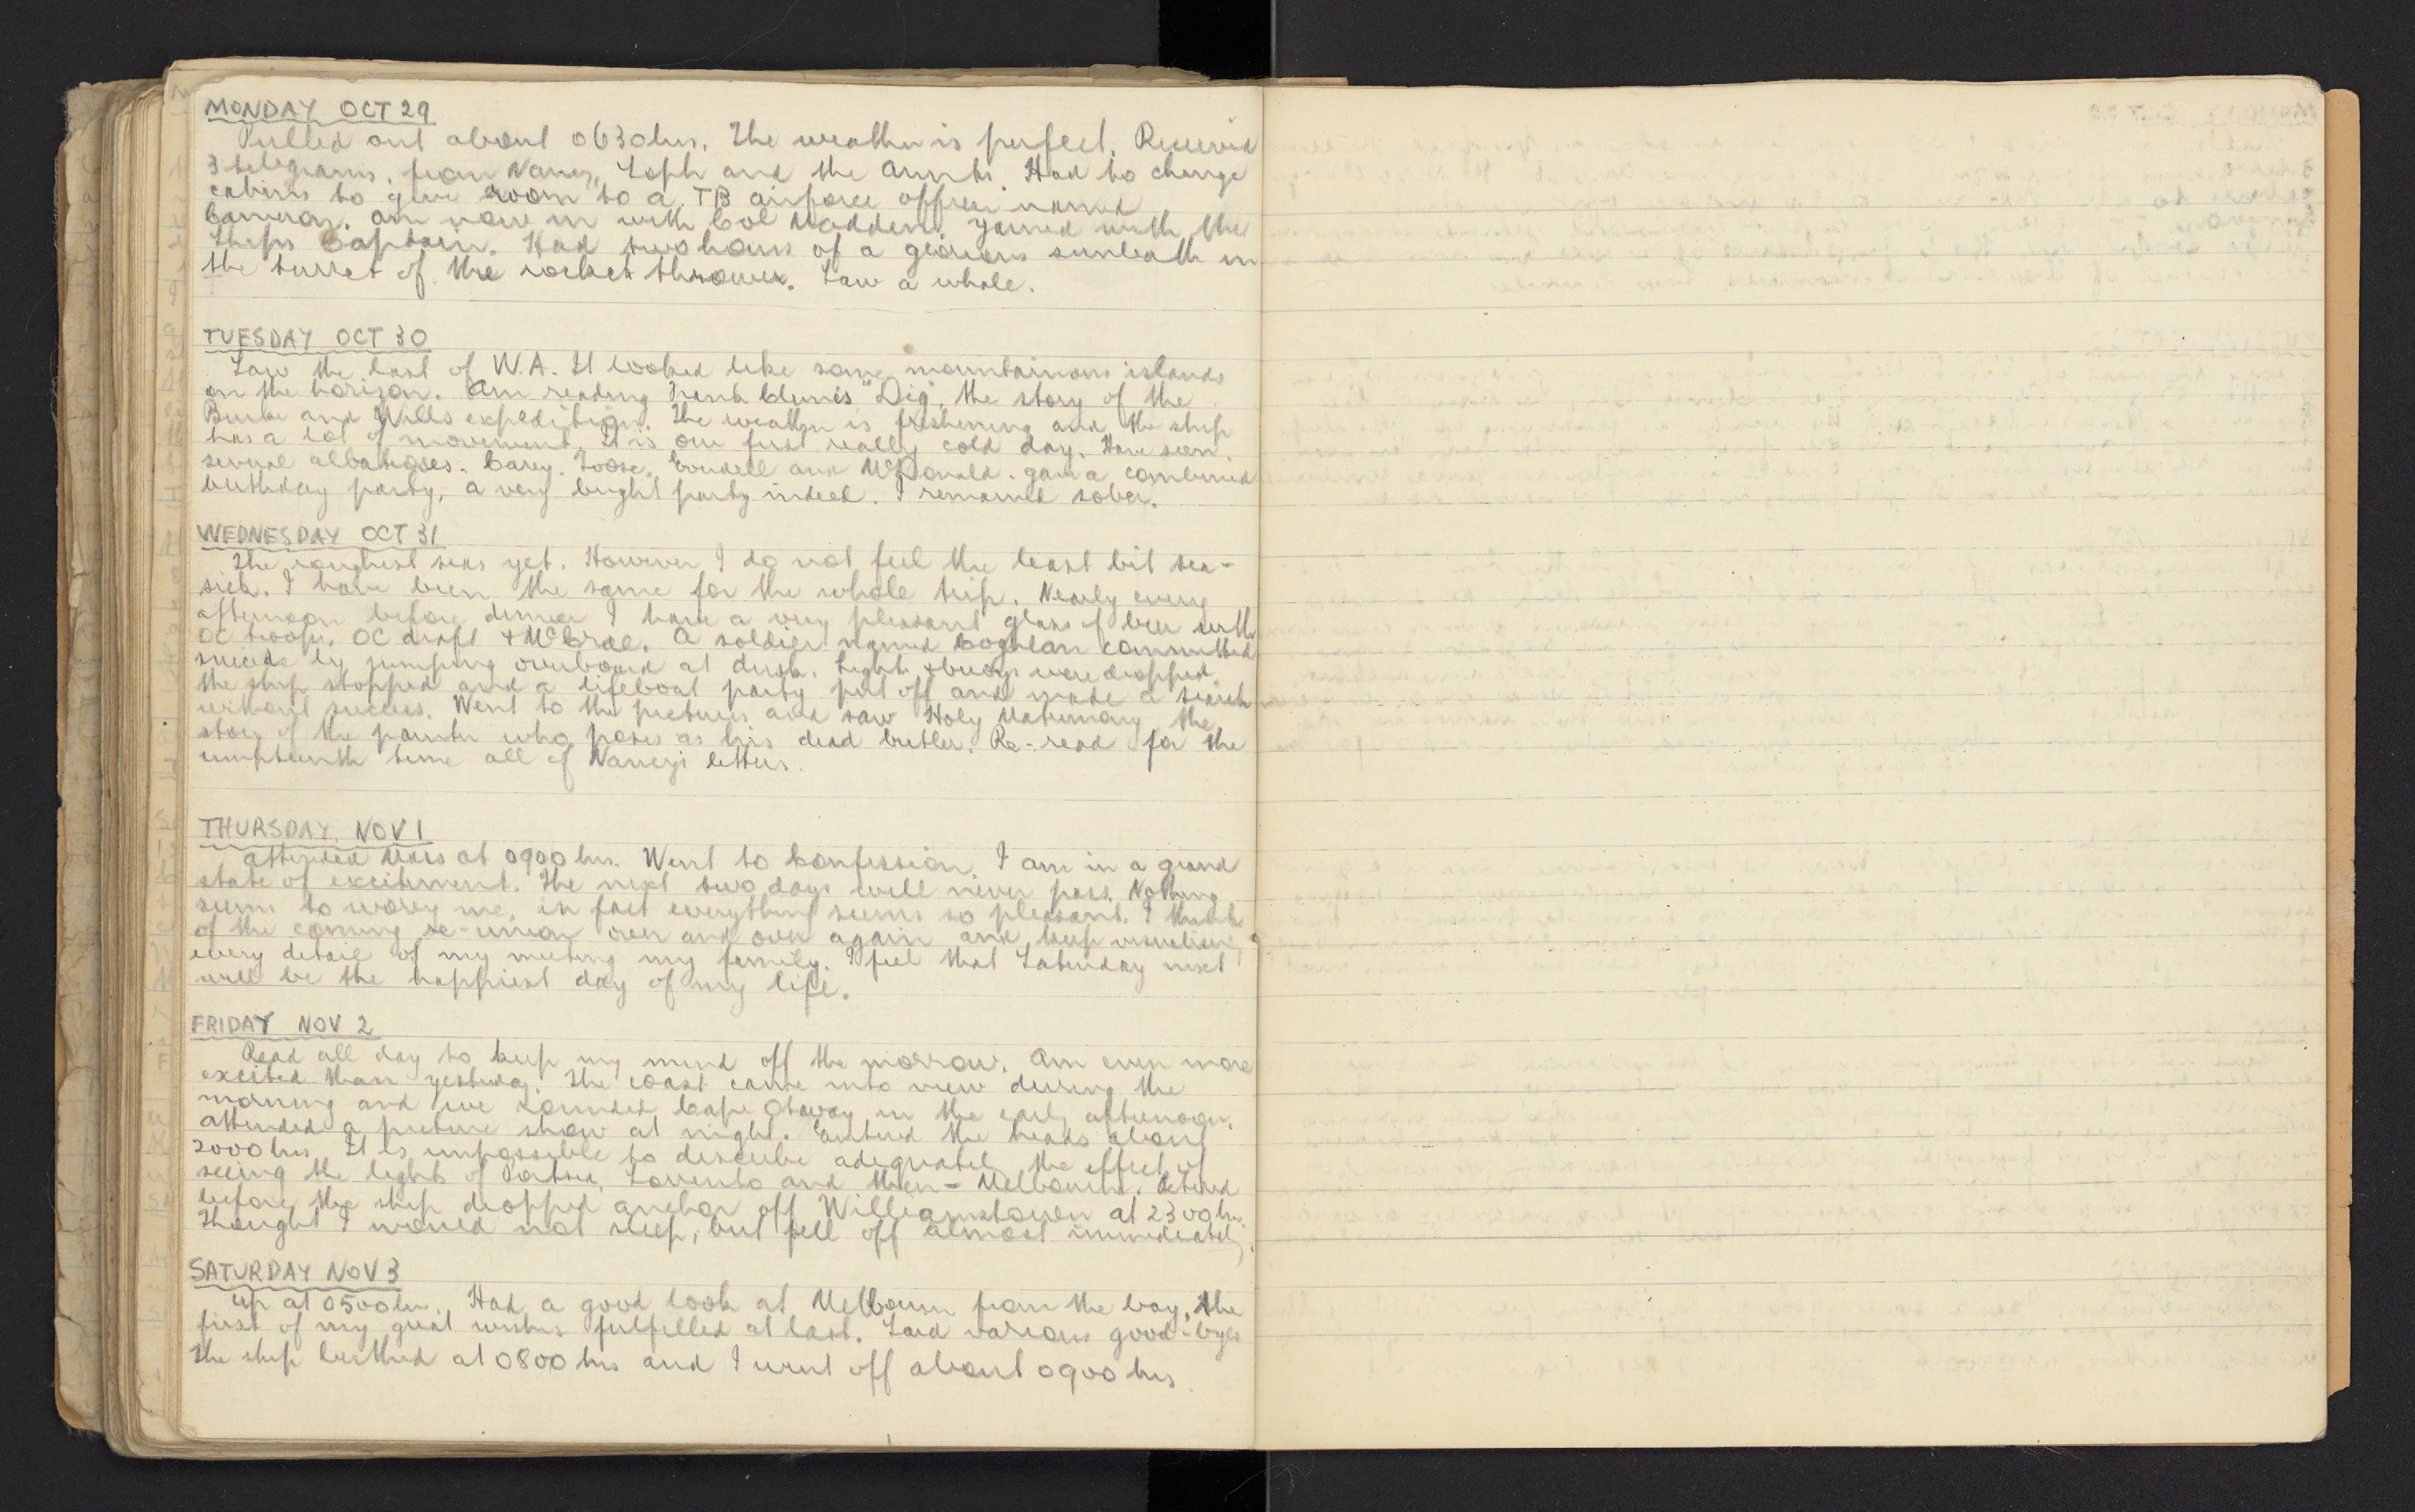 MONDAY OCT 29
Pulled out about 0630hrs. The weather is perfect. Received
3 telegrams, from Nancy, Soph and the Aunts. Had to change
cabins to give room to a TB airforce officer named
Cameron. Am now in with Col Madden. Yarned with the
Ships Captain. Had two hours of a glorious sunbath in
the turret of the rocket thrower. Saw a whale.
TUESDAY OCT 30
Saw the last of W.A. It looked like some mountainous islands
on the horizon. Am reading Frank Clune's "Dig", the story of the
Burke and Wills expedition. The weather is freshening and the ship
has a lot of movement. It is our first really cold day. Have seen
several albatrosses. Carey, Toose, and McDonald gave a combined
birthday party, a very bright party indeed. I remained sober.
WEDNESDAY OCT 31
The roughest seas yet. However I do not feel the least bit sea-
sick. I have been the same for the whole trip. Nearly every
afternoon before dinner I have a very pleasant glass of beer with
OC troops, OC draft & McCrae. A soldier named Coghlan committed
suicide by jumping overboard at dusk. Lights & buoys were dropped,
the ship stopped and a lifeboat party put off and made a search
without success. Went to the pictures and saw Holy Matrimony the
story of the painter who poses as his dead butler. Re-read for the
umpteenth time all of Nancy's letters.
THURSDAY NOV 1
Attended Mass at 0900 hrs. Went to Confession. I am in a grand
state of excitement. The next two days will never pass. Nothing
seems to worry me, in fact everything seems so pleasant. I think
of the coming re-union over and over again and keep visualising
every detail of my meeting my family. I feel that Saturday next
will be the happiest day of my life.
FRIDAY NOV 2
Read all day to keep my mind off the morrow. Am even more
excited than yesterday. The coast came into view during the
morning and we rounded Cape Otway in the early afternoon.
Attended a picture show at night. Entered the heads about
2000 hrs. It is impossible to describe adequately the effect of
seeing the lights of Portsea, Sorrento and then - Melbourne. Retired
before the ship dropped anchor off Williamstown at 2300 hrs.
Thought I would not sleep, but fell off almost immediately.
SATURDAY NOV 3
Up at 0500 hrs. Had a good look at Melbourn from the bay, the
first of my great wishes fulfilled at last. Said various good-byes
The ship berthed at 0800 hrs and I went off about 0900 hrs.